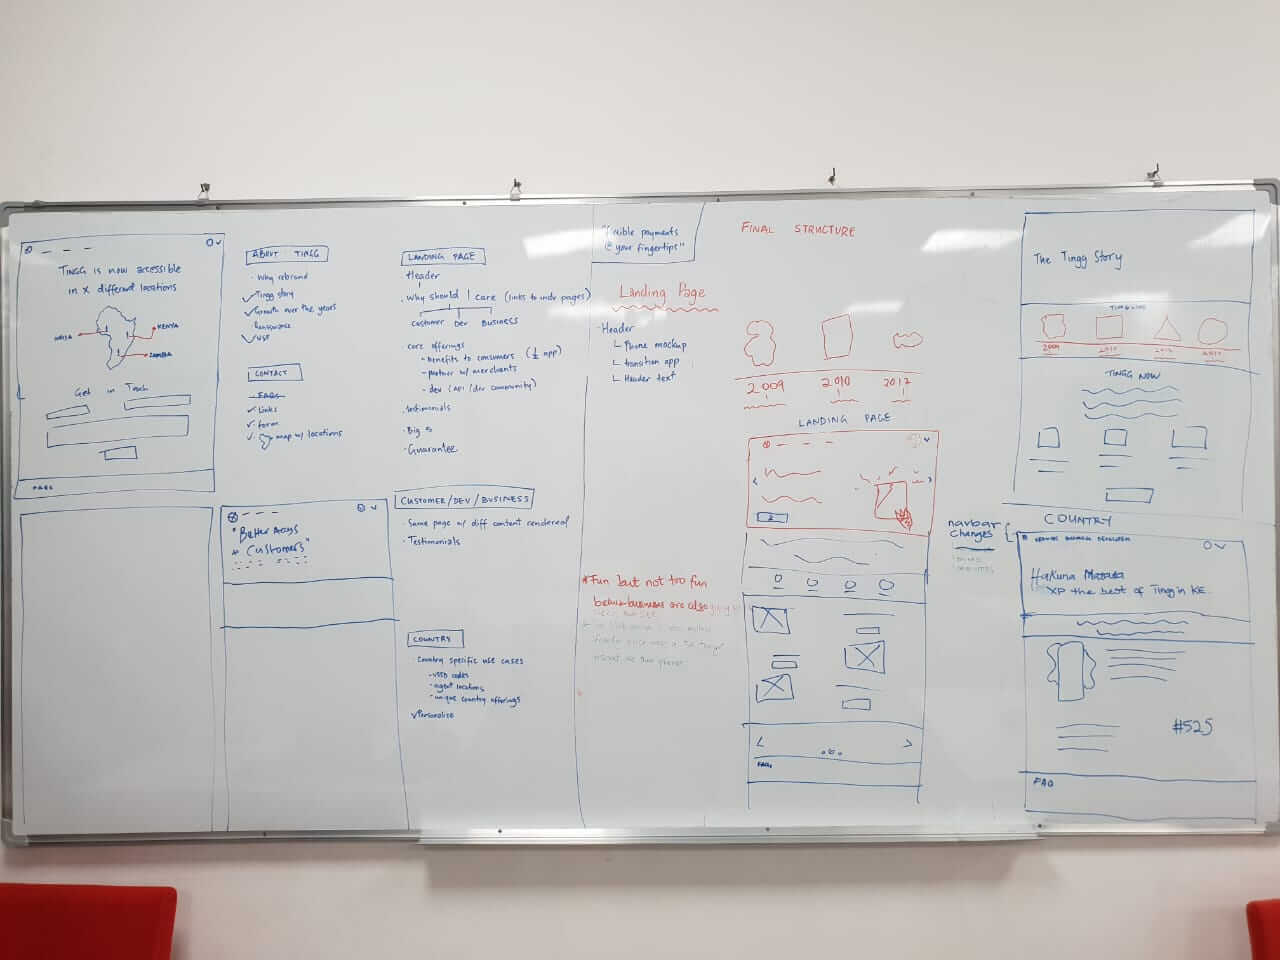 TINGG is now accessible
in X different locations
KENYA
ZAMBIA
Get in Touch
FAQs
ABOUT TINGG
· Why rebrand
✓ Tingg story
✓ Growth over the years
✓ USP
CONTACT
FAQs
✓ links
✓ form
✓ map w/ locations
"Better
Customers"
LANDING PAGE
· Header
· Why should I care (links to indv pages)
Customer Dev Business
· core offerings
- benefits to consumers (½ app)
- partner w/ merchants
- dev (API / dev community)
· Testimonials
· Big 5
· Guarantee
CUSTOMER/DEV/BUSINESS
· Same page w/ diff content rendered
· Testimonials
COUNTRY
· Country specific use cases
- USSD codes
- agent locations
- unique country offerings
✓ Personalize
payments
@ your fingertips"
Landing Page
· Header
Phone mockup
transition app
Header text
* Fun but not too fun
business are also
FINAL STRUCTURE
2009 2010 2012
LANDING PAGE
FAQs
navbar
changes
The Tingg Story
2009
TINGG NOW
COUNTRY
Hakuna Matata
XP the best of Tingg in KE.
#525
FAQ